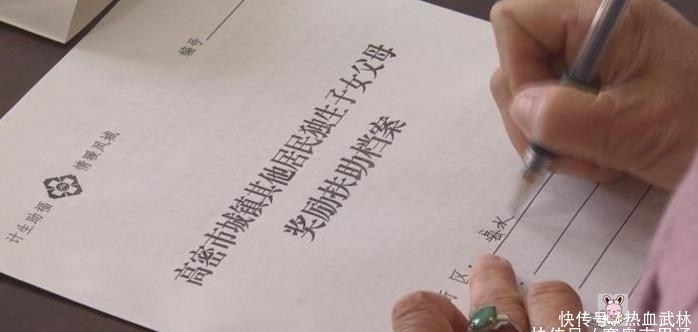 编号
计生助福 情暖凤城
高密市城镇其他居民独生子女父母
奖励扶助档案
街区:
快传号/热血武林